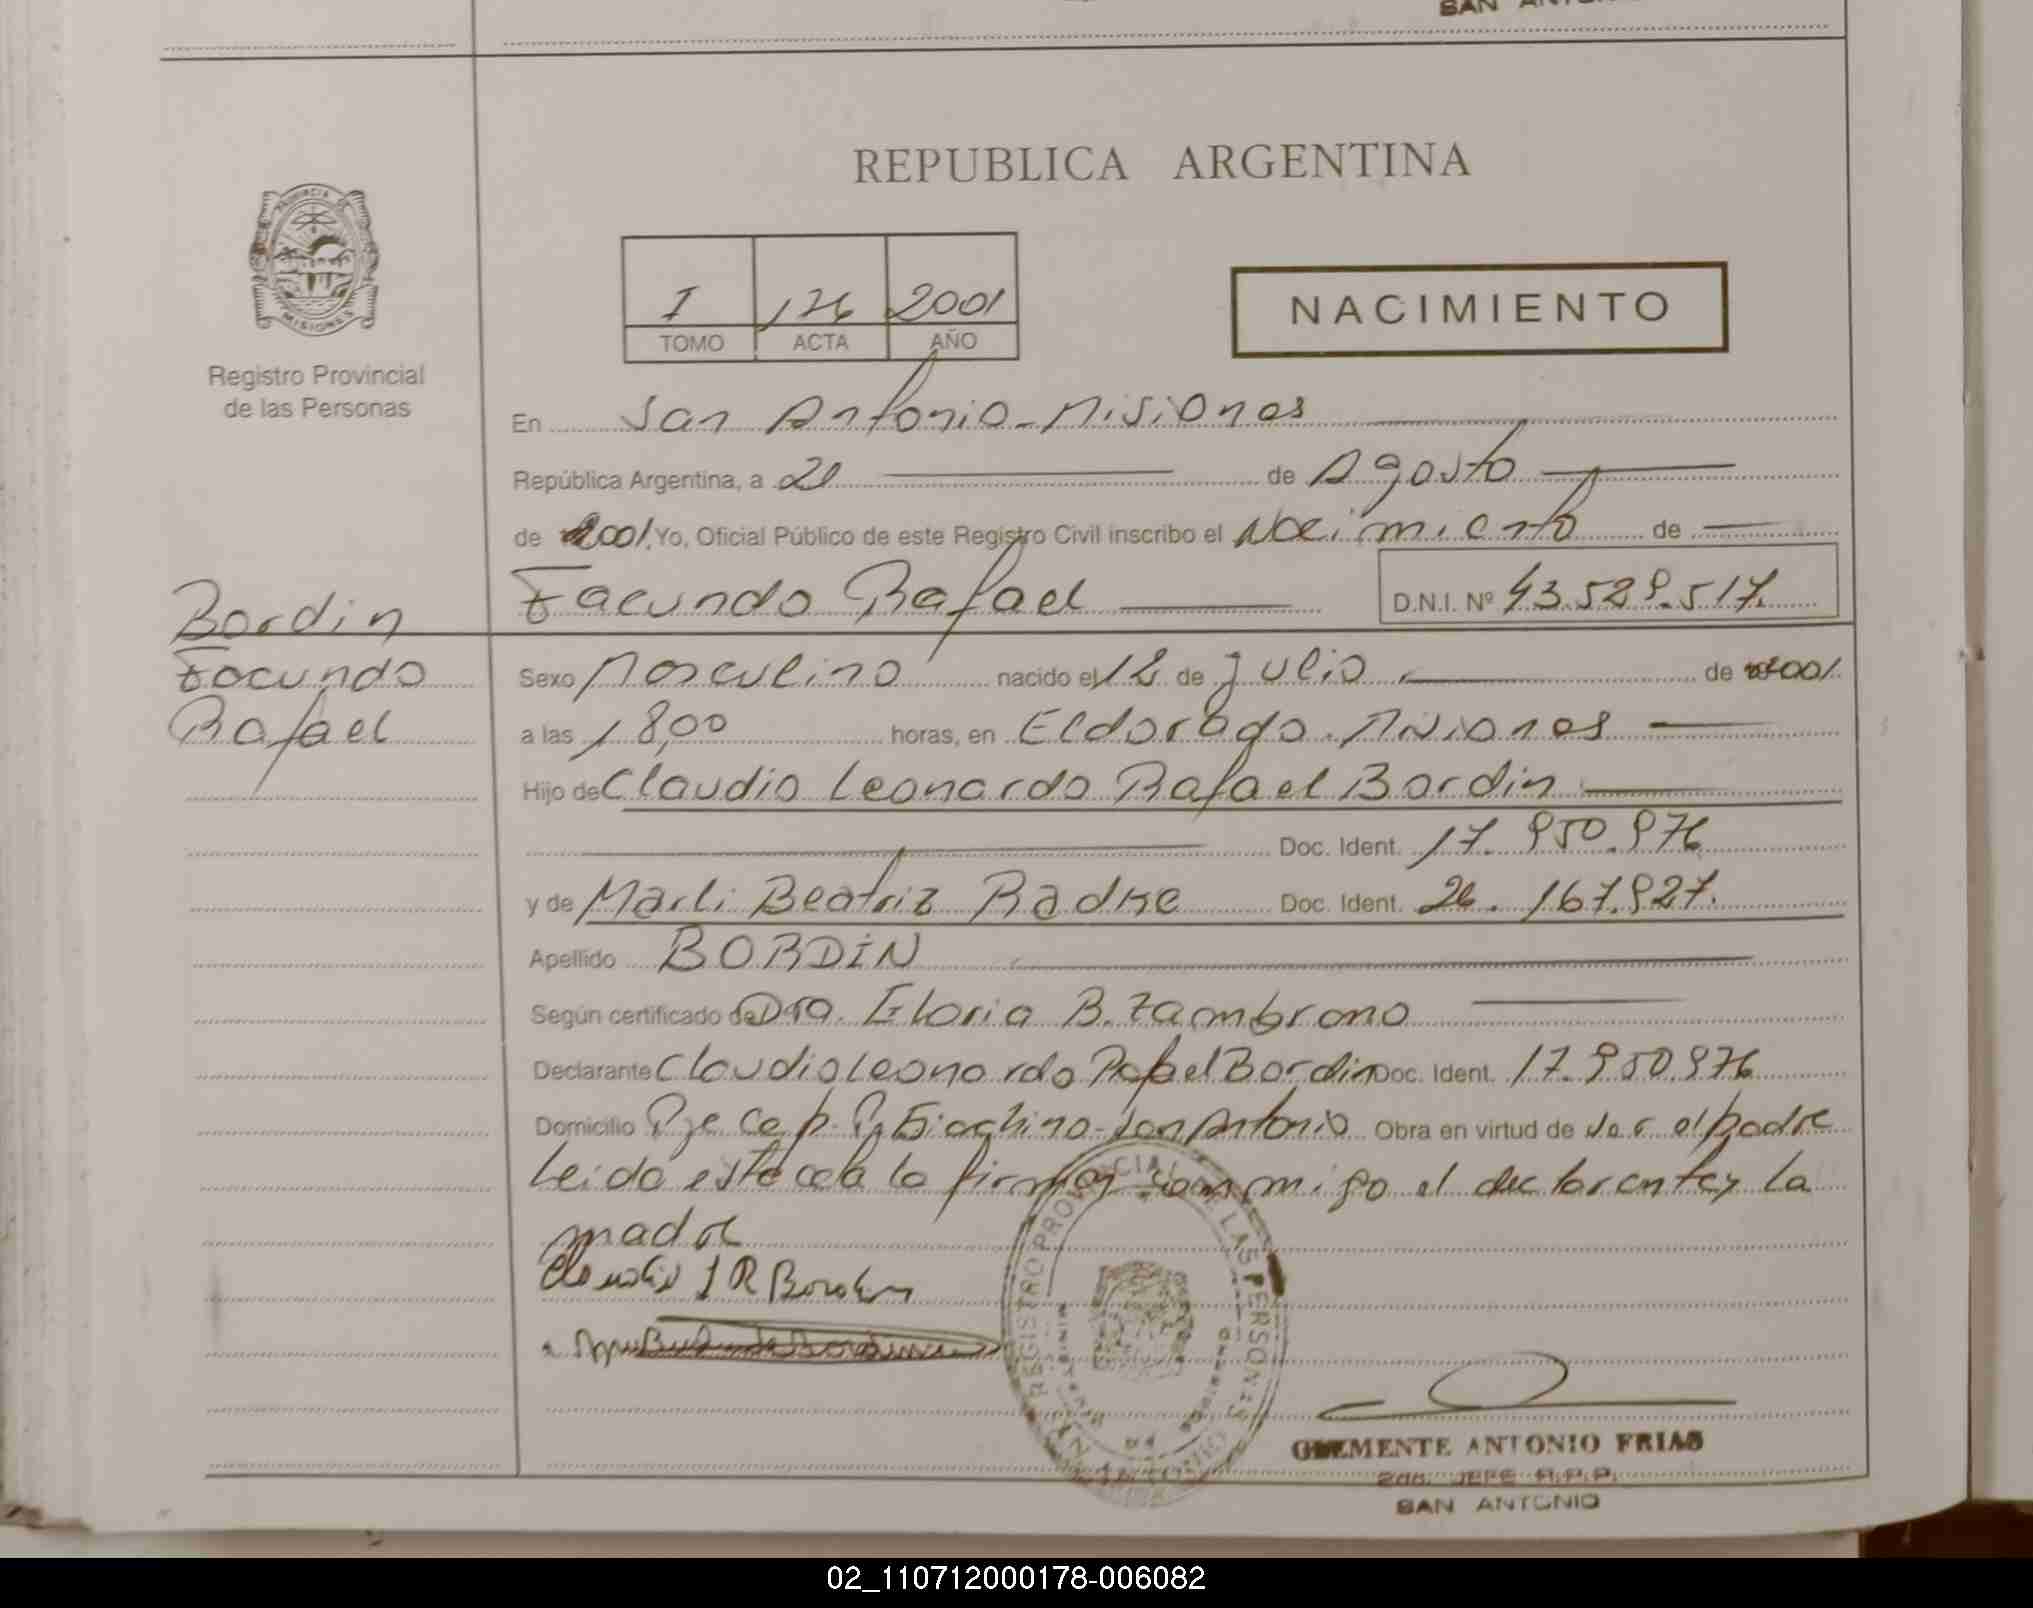 SAN ANTONIO
REPUBLICA ARGENTINA
PROVINCIA DE
MISIONES
Registro Provincial
de las Personas
I 176 2001
TOMO ACTA AÑO
NACIMIENTO
En San Antonio - Misiones
República Argentina, a 21 de Agosto
de 2001. Yo, Oficial Público de este Registro Civil inscribo el Nacimiento de
Facundo Rafael D.N.I. Nº 43.529.517.
Bordin
Facundo
Rafael
Sexo Masculino nacido el 18 de Julio de 2001.
a las 18,00 horas, en Eldorado. Misiones
Hijo de Claudio Leonardo Rafael Bordin
Doc. Ident. 17.950.976
y de Marli Beatriz Radke Doc. Ident. 26.167.927.
Apellido BORDIN
Según certificado de Dra. Gloria B. Zambrano
Declarante Claudio Leonardo Rafael Bordin Doc. Ident. 17.950.976
Domicilio Pje Cap. P. Giachino - San Antonio Obra en virtud de ser el padre
Leida esta acta la firman conmigo el declarante y la
madre
Claudio L R Bordin
REGISTRO PROVINCIAL DE LAS PERSONAS
CLEMENTE ANTONIO FRIAS
2do. JEFE R.P.P.
SAN ANTONIO
02_110712000178-006082